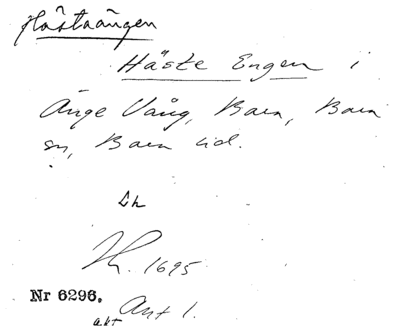 Hästaängen
Häste Engen i
Änge Vång, Bara, Bara
sn, Bara hd.
Lh
1695
Nr 6296.
akt Akt 1.